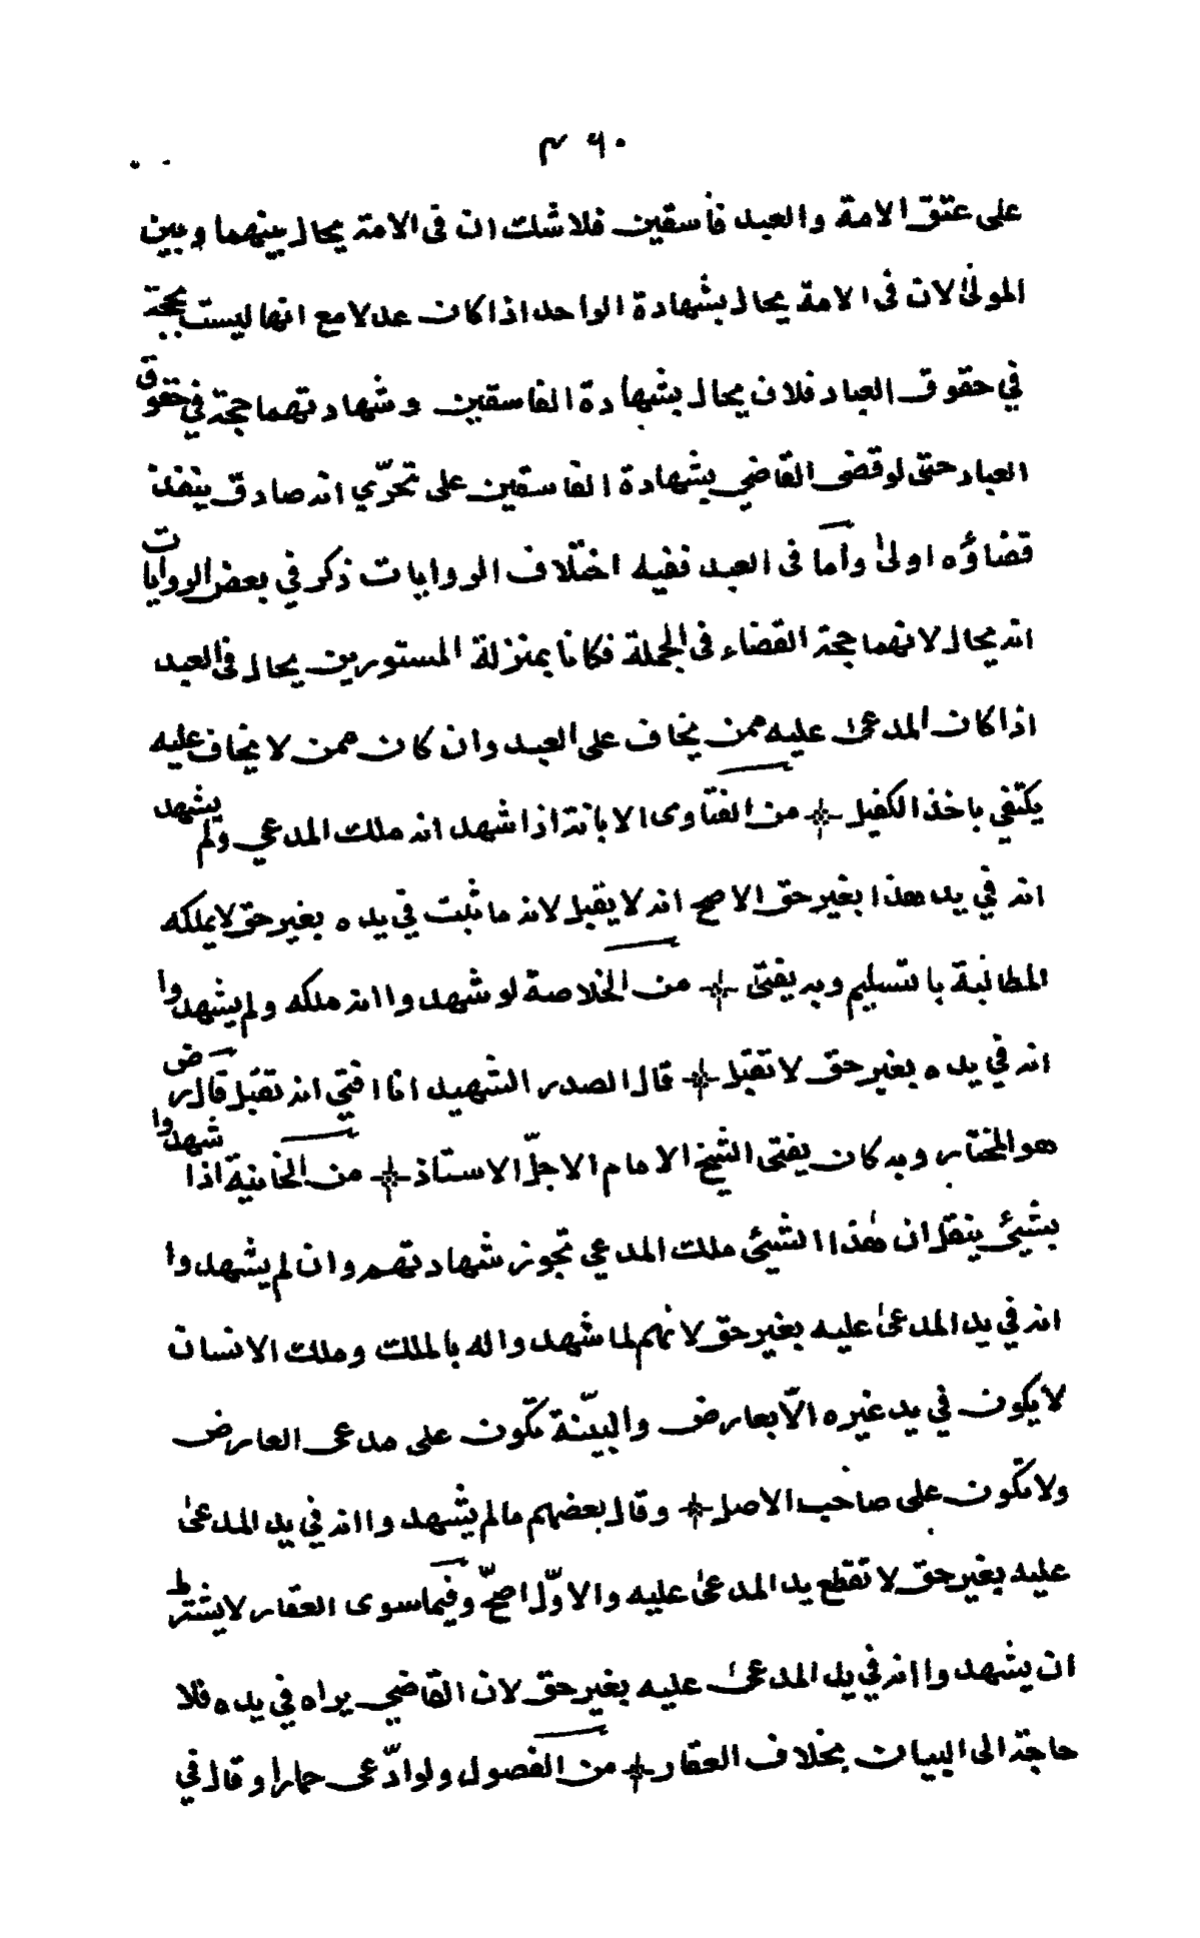 ٦٠ م
على عتق الامة والعبد فاسقين فلا شك ان فى الامة يحال بينهما وبين
المولىٰ لان فى الامة يحال بشهادة الواحد اذا كان عدلا مع انها ليست بحجة
في حقوق العباد فلان يحال بشهادة الفاسقين وشهادتهما حجة في حقوق
العباد حتى لو قضى القاضي بشهادة الفاسقين على تحرّي انه صادق ينفذ
قضاؤه اولىٰ وأما فى العبد ففيه اختلاف الروايات ذكر في بعض الروايات
انه يحال لانهما حجة القضاء فى الجملة فكانا بمنزلة المستورين يحال فى العبد
اذا كان المدعىٰ عليه ممن يخاف على العبد وان كان ممن لا يخاف عليه
يكتفي باخذ الكفيل من الفتاوى الابانة اذا شهد انه ملك المدعي ولم يشهد
انه في يد هذا بغير حق الاصح انه لا يقبل لانه ما ثبت في يده بغير حق لا يملكه
المطالبة بالتسليم وبه يفتى من الخلاصة لو شهدوا انه ملكه ولم يشهدوا
انه في يده بغير حق لا تقبل قال الصدر الشهيد انا افتي انه تقبل قال رض
هو المختار وبه كان يفتى الشيخ الامام الاجلّ الاستاذ من الخانية اذا شهدوا
بشيئ ينقل ان هٰذا الشيئ ملك المدعي تجوز شهادتهم وان لم يشهدوا
انه في يد المدعىٰ عليه بغير حق لانهم لما شهدوا له بالملك وملك الانسان
لا يكون في يد غيره الّا بعارض والبيّنة تكون على مدعى العارض
ولا تكون على صاحب الاصل وقال بعضهم مالم يشهدوا انه في يد المدعىٰ
عليه بغير حق لا تقطع يد المدعىٰ عليه والاوّل اصحّ وفيما سوى العقار لا يشترط
ان يشهدوا انه في يد المدعىٰ عليه بغير حق لان القاضي يراه في يده فلا
حاجة الى البيان بخلاف العقار من الفصول ولو ادّعى حمارا وقال في